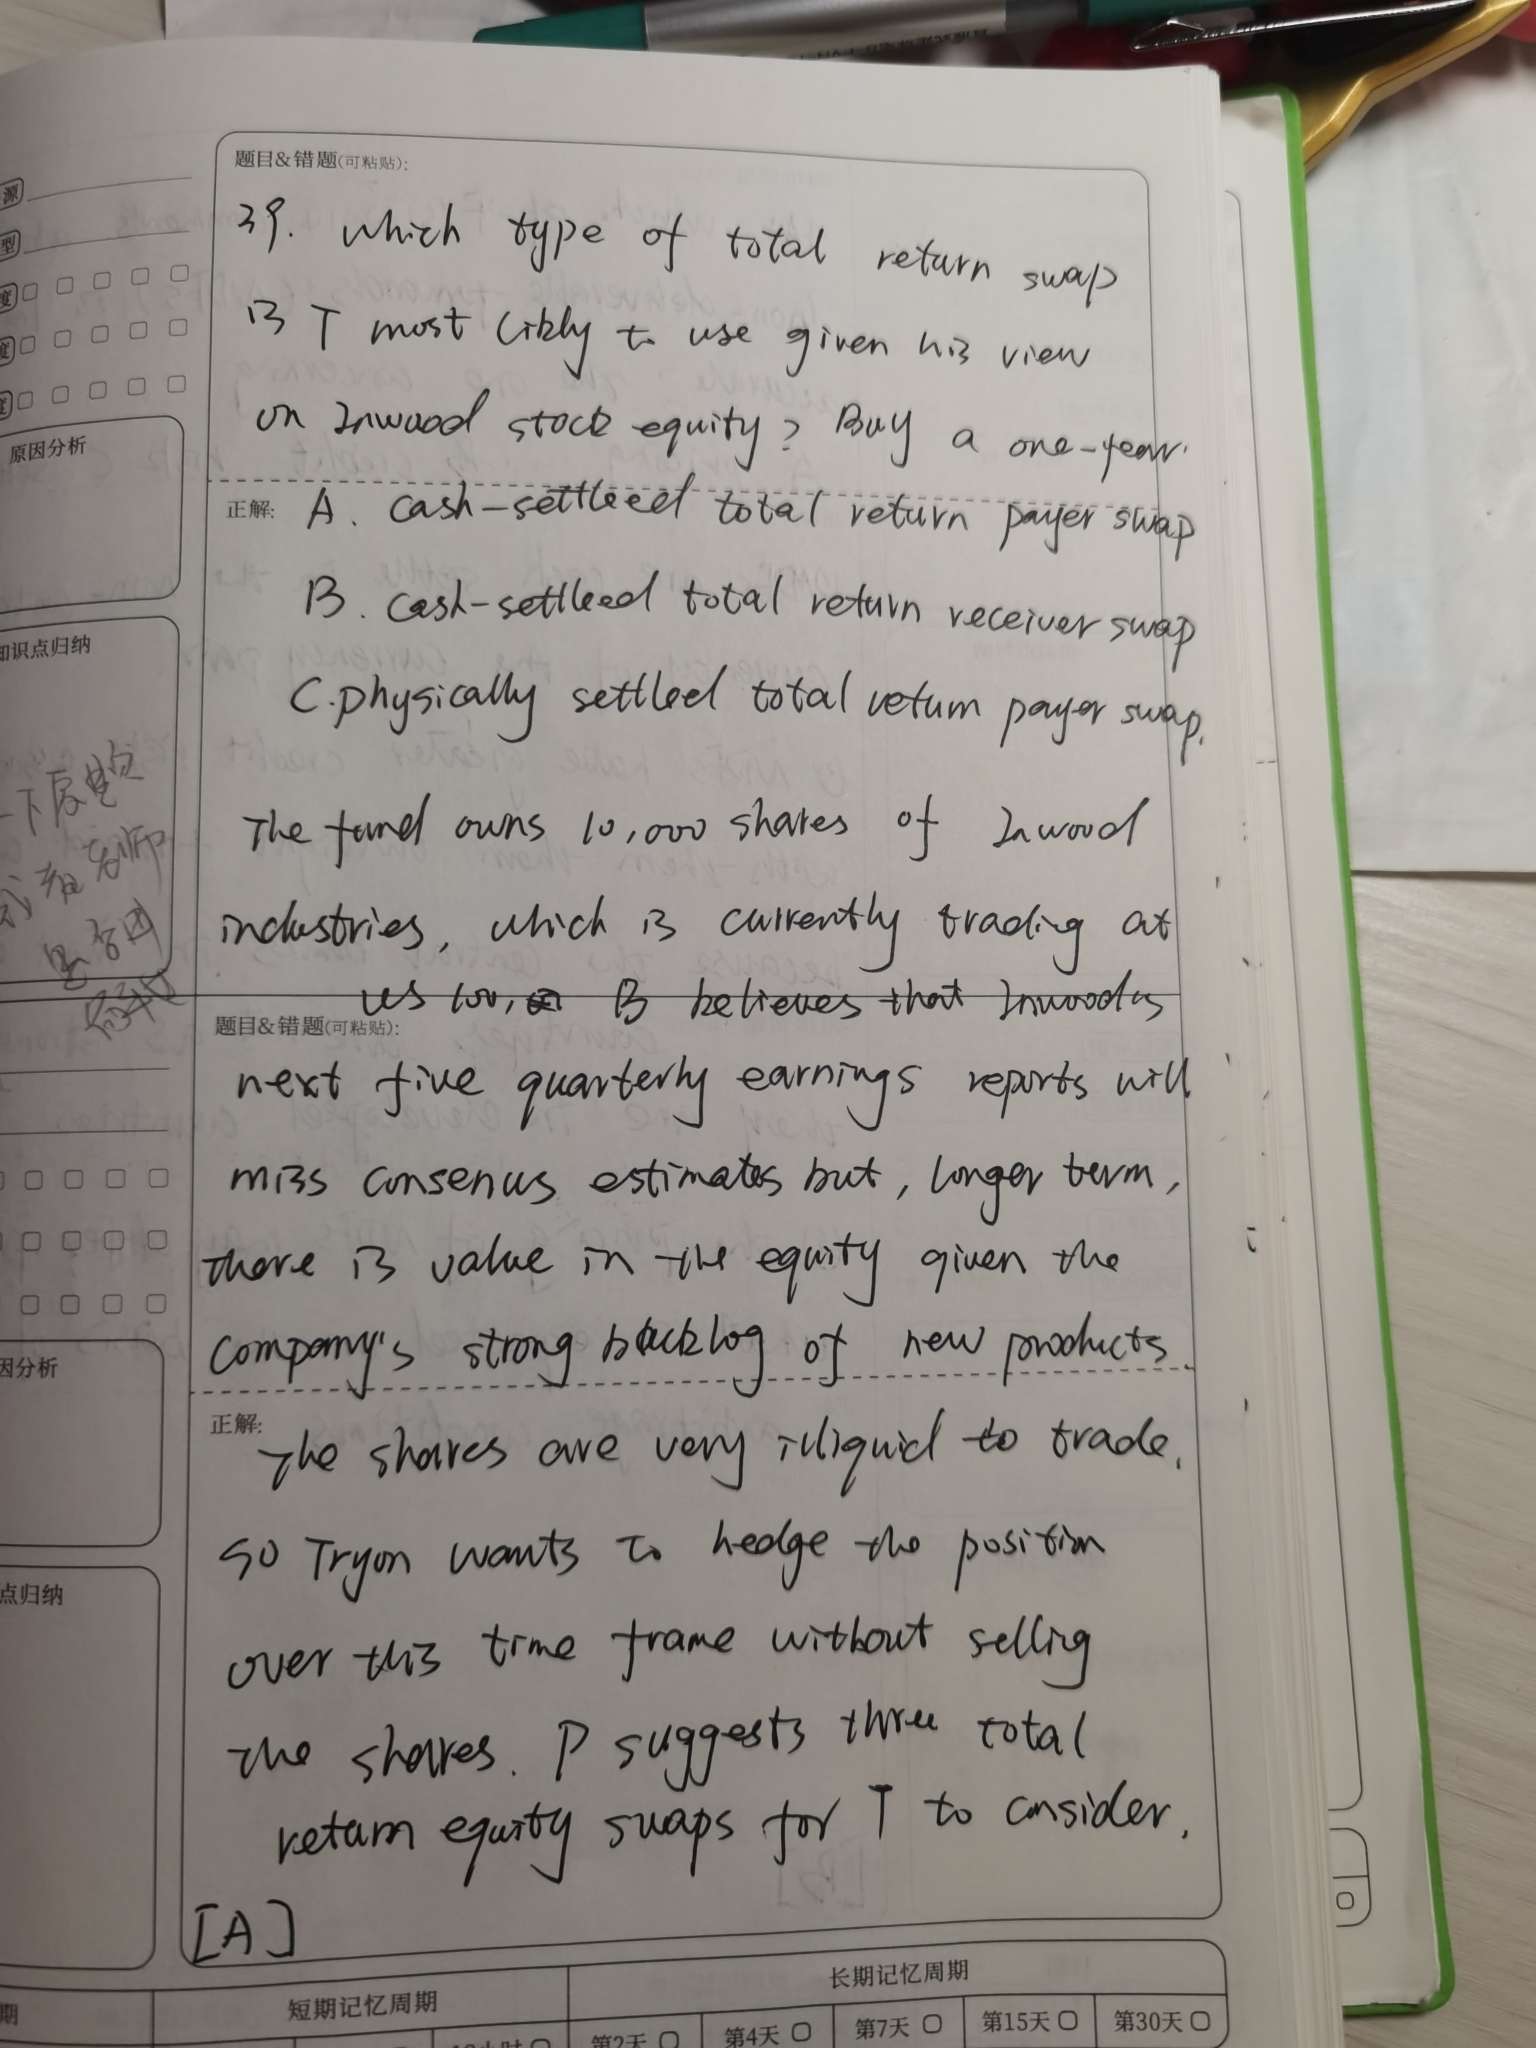 源
型
度
度
度
原因分析
知识点归纳
题目&错题(可粘贴):
39. Which type of total return swap
is T most likly to use given his view
on Inwood stock equity? Buy a one-year.
正解: A. cash-settleed total return payer swap
B. cash-settleed total return receiver swap
C. physically settled total return payer swap.
The fund owns 10,000 shares of Inwood
industries, which is currently trading at
us 100, B believes that Inwoods
题目&错题(可粘贴):
next five quarterly earnings reports will
miss consenus estimates but, longer term,
there is value in the equity given the
company's strong backlog of new products.
正解:
The shares are very illiquid to trade,
so Tryon wants to hedge the position
over this time frame without selling
the shares. P suggests three total
return equity swaps for T to consider.
[A]
因分析
点归纳
期
短期记忆周期
长期记忆周期
第2天
第4天
第7天
第15天
第30天